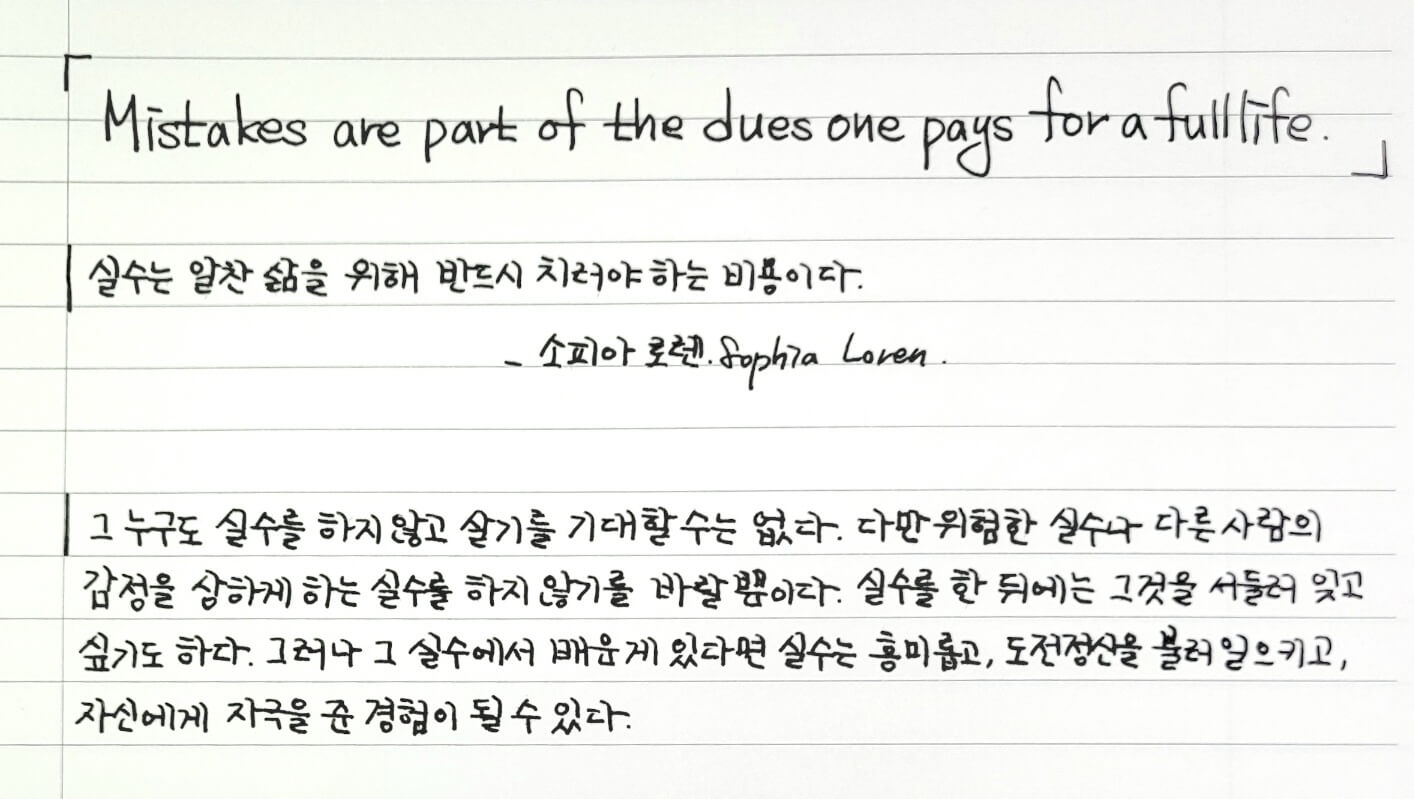 「Mistakes are part of the dues one pays for a full life.」
실수는 알찬 삶을 위해 반드시 치러야 하는 비용이다.
- 소피아 로렌. Sophia Loren.
그 누구도 실수를 하지 않고 살기를 기대할 수는 없다. 다만 위험한 실수나 다른 사람의
감정을 상하게 하는 실수를 하지 않기를 바랄 뿐이다. 실수를 한 뒤에는 그것을 서둘러 잊고
싶기도 하다. 그러나 그 실수에서 배운게 있다면 실수는 흥미롭고, 도전정산을 불러 일으키고,
자신에게 자극을 준 경험이 될 수 있다.